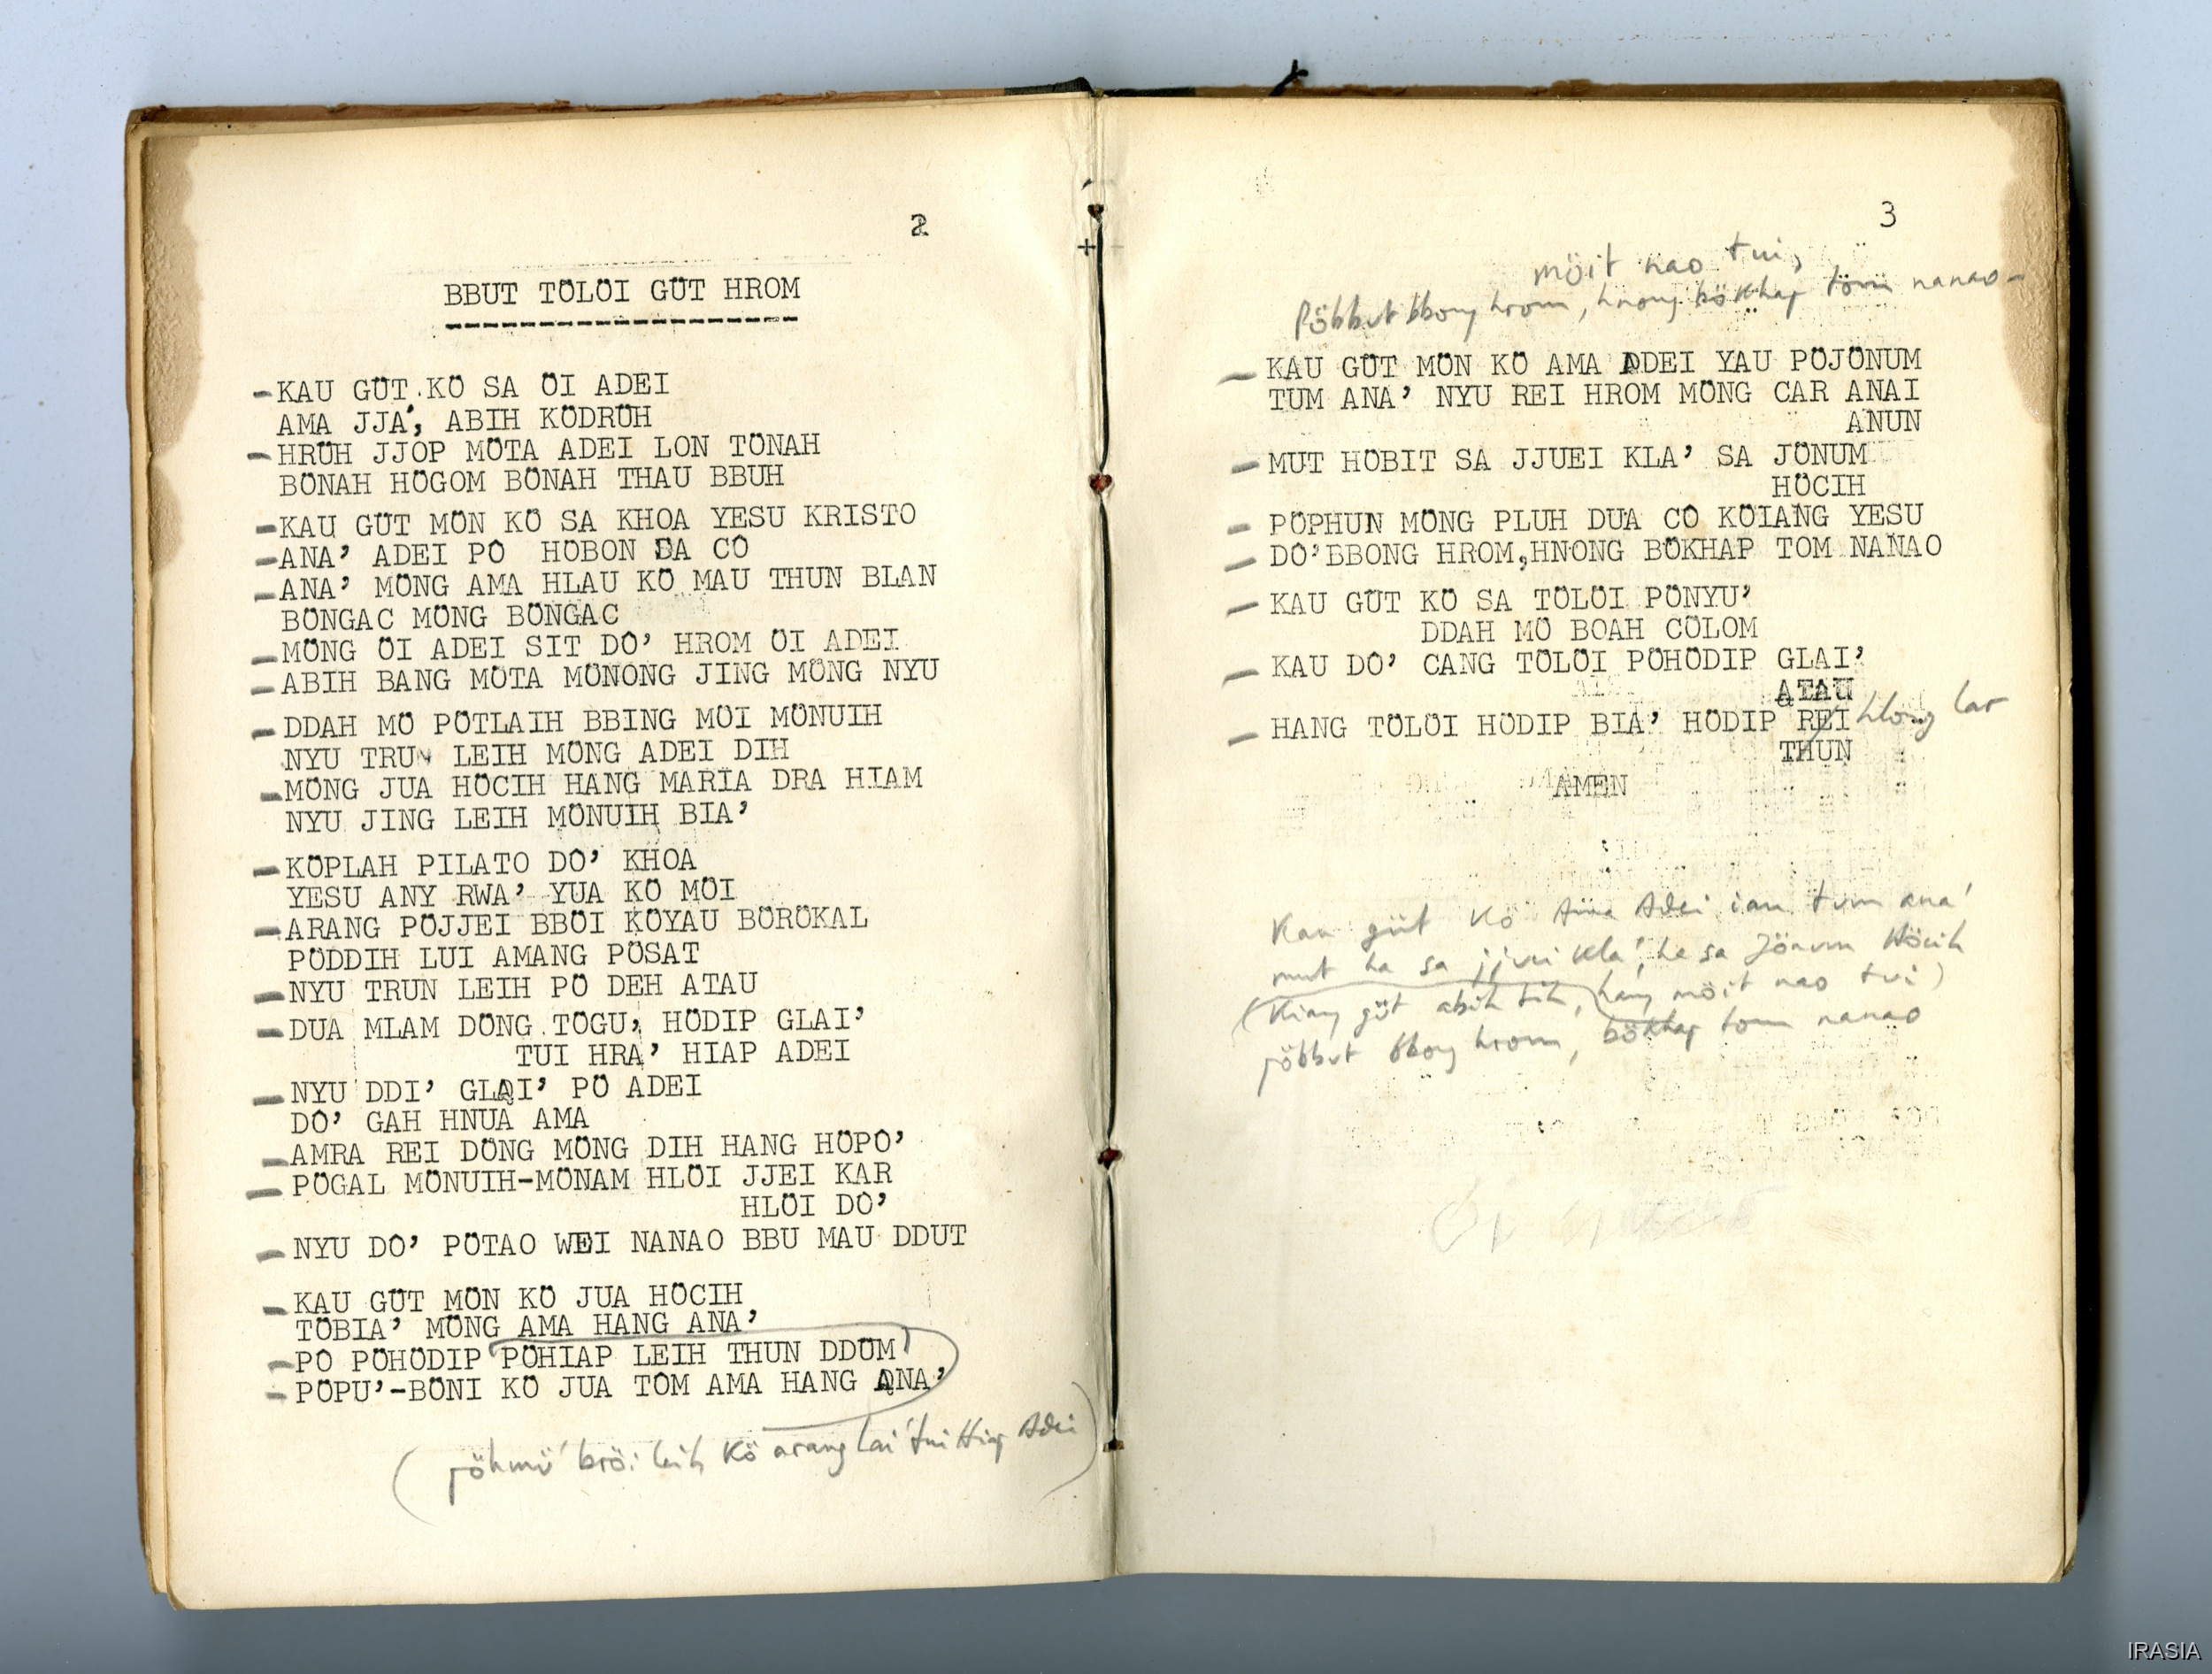 2
BBUT TÖLÖI GÜT HROM
-KAU GÜT KÖ SA ÖI ADEI
AMA JJA', ABIH KÖDRÜH
-HRÜH JJOP MÖTA ADEI LON TÖNAH
BÖNAH HÖGOM BÖNAH THAU BBUH
-KAU GÜT MÖN KÖ SA KHOA YESU KRISTO
-ANA' ADEI PÔ HÖBON SA CÔ
-ANA' MÖNG AMA HLAU KÖ MAU THUN BLAN
BÖNGAC MÖNG BÖNGAC
-MÖNG ÖI ADEI SIT DÔ' HROM ÖI ADEI
-ABIH BANG MÖTA MÖNÔNG JING MÖNG NYU
-DDAH MÖ PÖTLAIH BBING MÖI MÖNUIH
NYU TRUN LEIH MÖNG ADEI DIH
-MÖNG JUA HÖCIH HANG MARIA DRA HIAM
NYU JING LEIH MÖNUIH BIA'
-KÖPLAH PILATO DÔ' KHOA
YESU ANY RWA' YUA KÖ MÖI
-ARANG PÖJJEI BBÖI KÖYAU BÖRÖKAL
PÖDDIH LUI AMANG PÖSAT
-NYU TRUN LEIH PÖ DEH ATAU
-DUA MLAM DÖNG TÖGU, HÖDIP GLAI'
TUI HRA' HIAP ADEI
-NYU DDI' GLAI' PÖ ADEI
DÔ' GAH HNUĂ AMA
-AMRA REI DÖNG MÖNG DIH HANG HÖPÔ'
-PÖGAL MÖNUIH-MÖNAM HLÖI JJEI KAR
HLÖI DÔ'
-NYU DÔ' PÖTAO WEI NANAO BBU MAU DDUT
-KAU GÜT MÖN KÖ JUA HÖCIH
TÖBIA' MÖNG AMA HANG ANA'
-PÔ PÖHÖDIP PÖHIAP LEIH THUN DDÜM
-PÖPU'-BÖNI KÖ JUA TÔM AMA HANG ANA'
(pöhmü' bröi leih kö arang lai' tui Hiap Adei)
3
möit nao tui,
Pöbbut bbong hrom, hnong bökhap tôm nanao-
-KAU GÜT MÖN KÖ AMA ADEI YAU PÖJÖNUM
TUM ANA' NYU REI HROM MÖNG CAR ANAI
ANUN
-MUT HÖBIT SA JJUEI KLA' SA JÖNUM
HÖCIH
-PÖPHUN MÖNG PLUH DUA CÔ KÖIANG YESU
-DÔ'BBONG HROM,HNONG BÖKHAP TOM NANAO
-KAU GÜT KÖ SA TÖLÖI PÖNYU'
DDAH MÖ BOAH CÖLOM
-KAU DÔ' CANG TÖLÖI PÖHÖDIP GLAI'
ATAU
-HANG TÖLÖI HÖDIP BIA' HÖDIP REI hlong lar
THUN
AMEN
Kau güt kö Ama Adei iau tum ana'
mut ha sa jjuei kla', ha sa Jönum Höcih
(Kiang güt abih tih, hang möit nao tui)
pöbbut bbong hrom, bökhap tom nanao
IRASIA